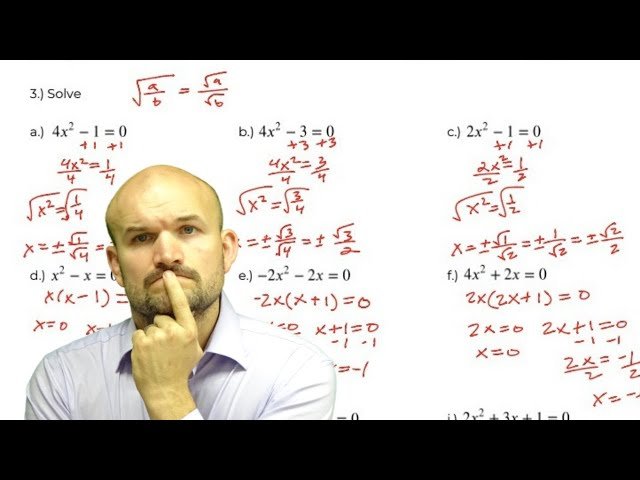 3.) Solve
√a/b = √a/√b
a.) 4x² − 1 = 0
+1 +1
4x²/4 = 1/4
√x² = √1/4
x = ± √1/√4 =
b.) 4x² − 3 = 0
+3 +3
4x²/4 = 3/4
√x² = √3/4
= ± √3/√4 = ± √3/2
c.) 2x² − 1 = 0
+1 +1
2x²/2 = 1/2
√x² = √1/2
x = ± √1/√2 = ± 1/√2 = ± √2/2
d.) x² − x = 0
x(x − 1)
x = 0
e.) −2x² − 2x = 0
-2x(x + 1) = 0
= 0 x + 1 = 0
-1 -1
= -1
f.) 4x² + 2x = 0
2x(2x + 1) = 0
2x = 0 2x + 1 = 0
-1 -1
x = 0 2x/2 = -1/2
x = -
= 0
2x² + 3x + 1 = 0